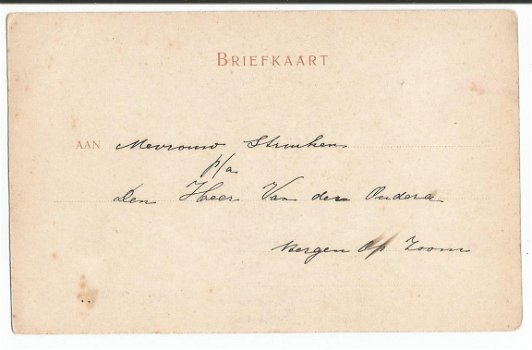 BRIEFKAART
AAN Mevrouw Struken
p/a
Den Heer Van den Oudera
Bergen Op Zoom